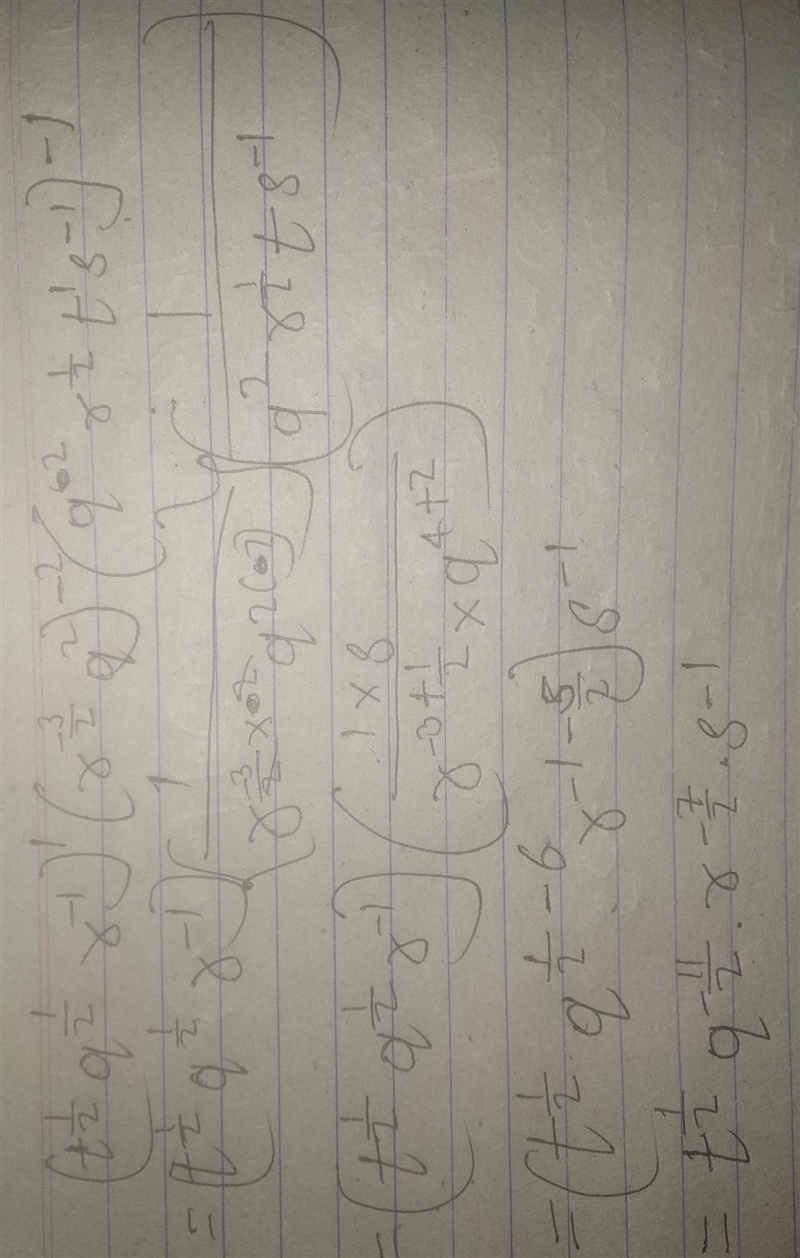 (t^{\frac{1}{2}} q^{\frac{1}{2}} x^{-1})^{1} (x^{-\frac{3}{2}} q^{2})^{-2} (q^{2} x^{\frac{1}{2}} t^{1} s^{-1})^{-1}
= (t^{\frac{1}{2}} q^{\frac{1}{2}} x^{-1}) (\frac{1}{x^{-\frac{3}{2} \times 2} q^{2(2)}}) (\frac{1}{q^{2} x^{\frac{1}{2}} t s^{-1}})
= (t^{\frac{1}{2}} q^{\frac{1}{2}} x^{-1}) (\frac{1 \times s}{x^{-3+\frac{1}{2}} \times q^{4+2}})
= (t^{\frac{1}{2}} q^{\frac{1}{2}-6} x^{-1-\frac{5}{2}}) s^{-1}
= t^{\frac{1}{2}} q^{-\frac{11}{2}} . x^{-\frac{7}{2}} . s^{-1}